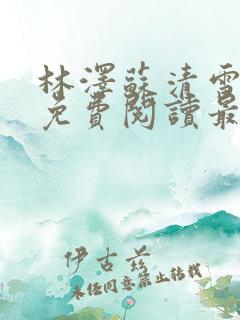 林澤蘇清雪
免費閱讀最
伊古兰
未经同意禁止转载